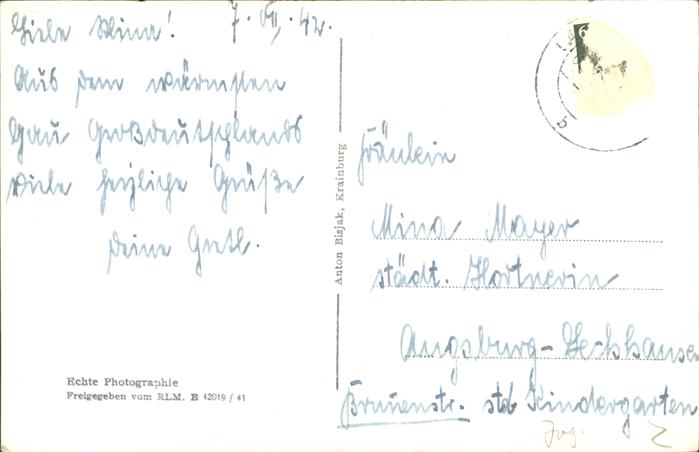 Liebe Mina! 7. VII. 42.
Aus dem wärmsten
Gau Großdeutschlands
viele herzliche Grüße
Deine Gretl.
Echte Photographie
Freigegeben vom RLM. B 42019/41
Anton Bisjak, Krainburg
Fräulein
Mina Mayer
städt. Hortnerin
Augsburg-Hochzoll
Brunnenstr. std Kindergarten
Jug.